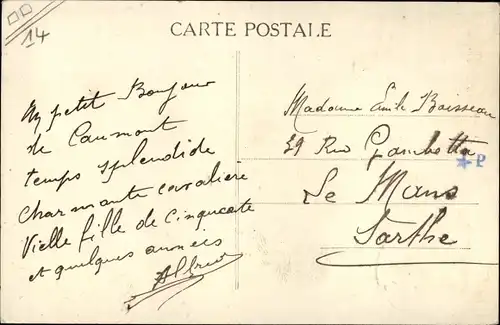 14
CARTE POSTALE
Un petit Bonjour
de Caumont
temps splendide
charmante cavalière
Vielle fille de Cinquante
et quelques années
Alfred
Madame Emile Boisseau
29 Rue Gambetta
* P
Le Mans
Sarthe